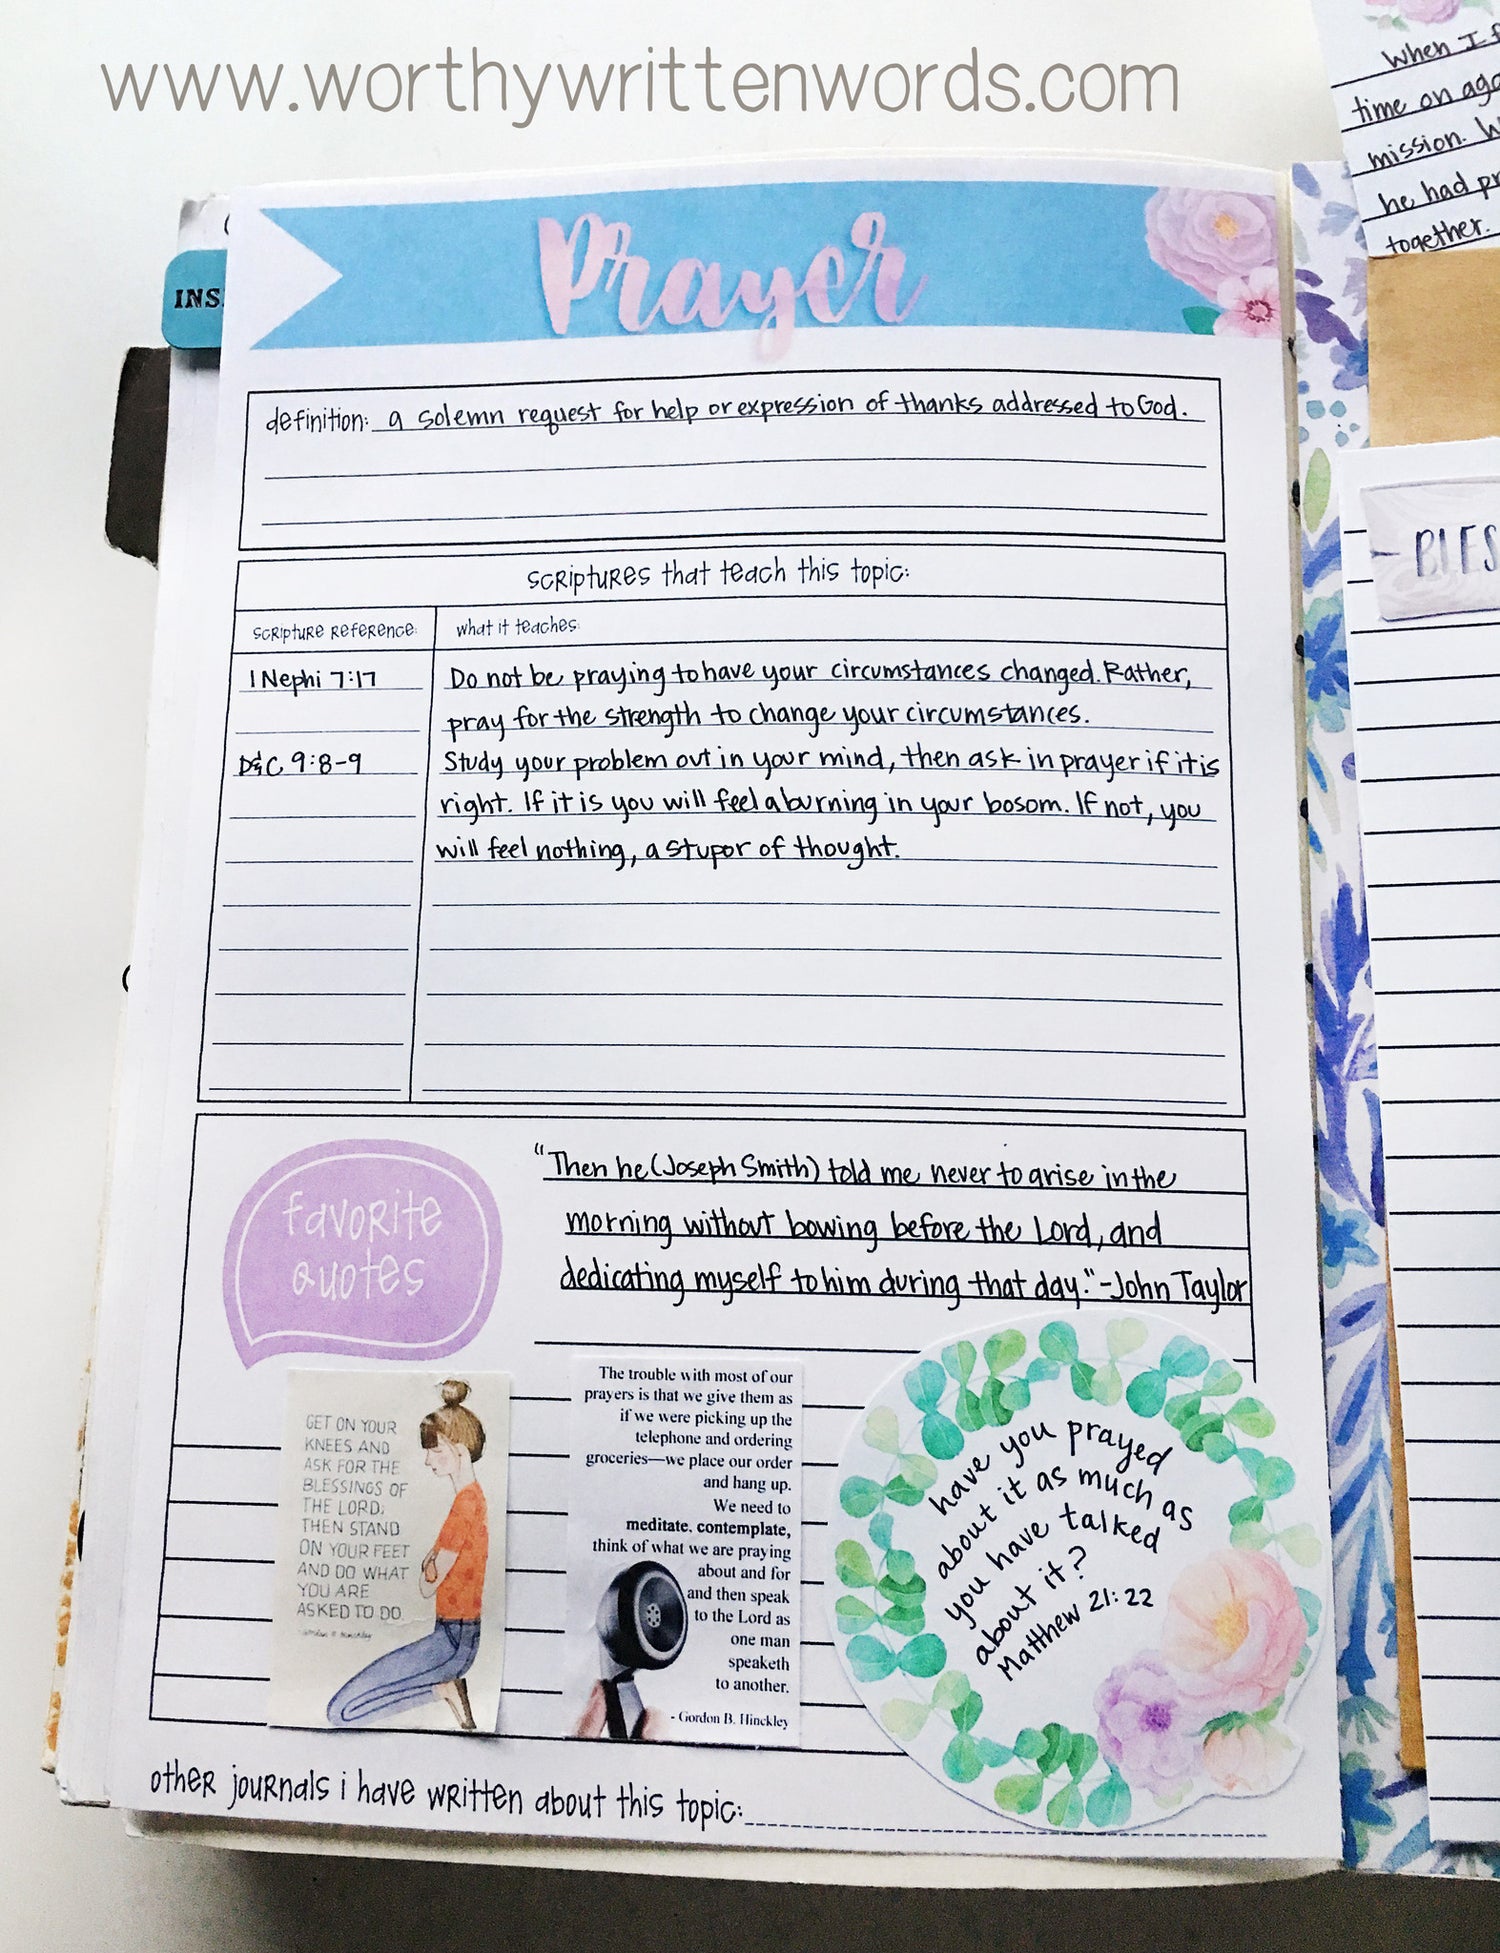 www.worthywrittenwords.com
When I
time on ago
mission.
he had
together.
INS
Prayer
definition: a solemn request for help or expression of thanks addressed to God.
scriptures that teach this topic:
scripture reference: what it teaches:
1 Nephi 7:17 Do not be praying to have your circumstances changed. Rather,
pray for the strength to change your circumstances.
D&C 9:8-9 Study your problem out in your mind, then ask in prayer if it is
right. If it is you will feel a burning in your bosom. If not, you
will feel nothing, a stupor of thought.
BLES
favorite
quotes
"Then he (Joseph Smith) told me never to arise in the
morning without bowing before the Lord, and
dedicating myself to him during that day." -John Taylor
GET ON YOUR
KNEES AND
ASK FOR THE
BLESSINGS OF
THE LORD;
THEN STAND
ON YOUR FEET
AND DO WHAT
YOU ARE
ASKED TO DO.
Gordon B. Hinckley
The trouble with most of our
prayers is that we give them as
if we were picking up the
telephone and ordering
groceries—we place our order
and hang up.
We need to
meditate, contemplate,
think of what we are praying
about and for
and then speak
to the Lord as
one man
speaketh
to another.
- Gordon B. Hinckley
have you prayed
about it as much as
you have talked
about it?
Matthew 21:22
other journals i have written about this topic: